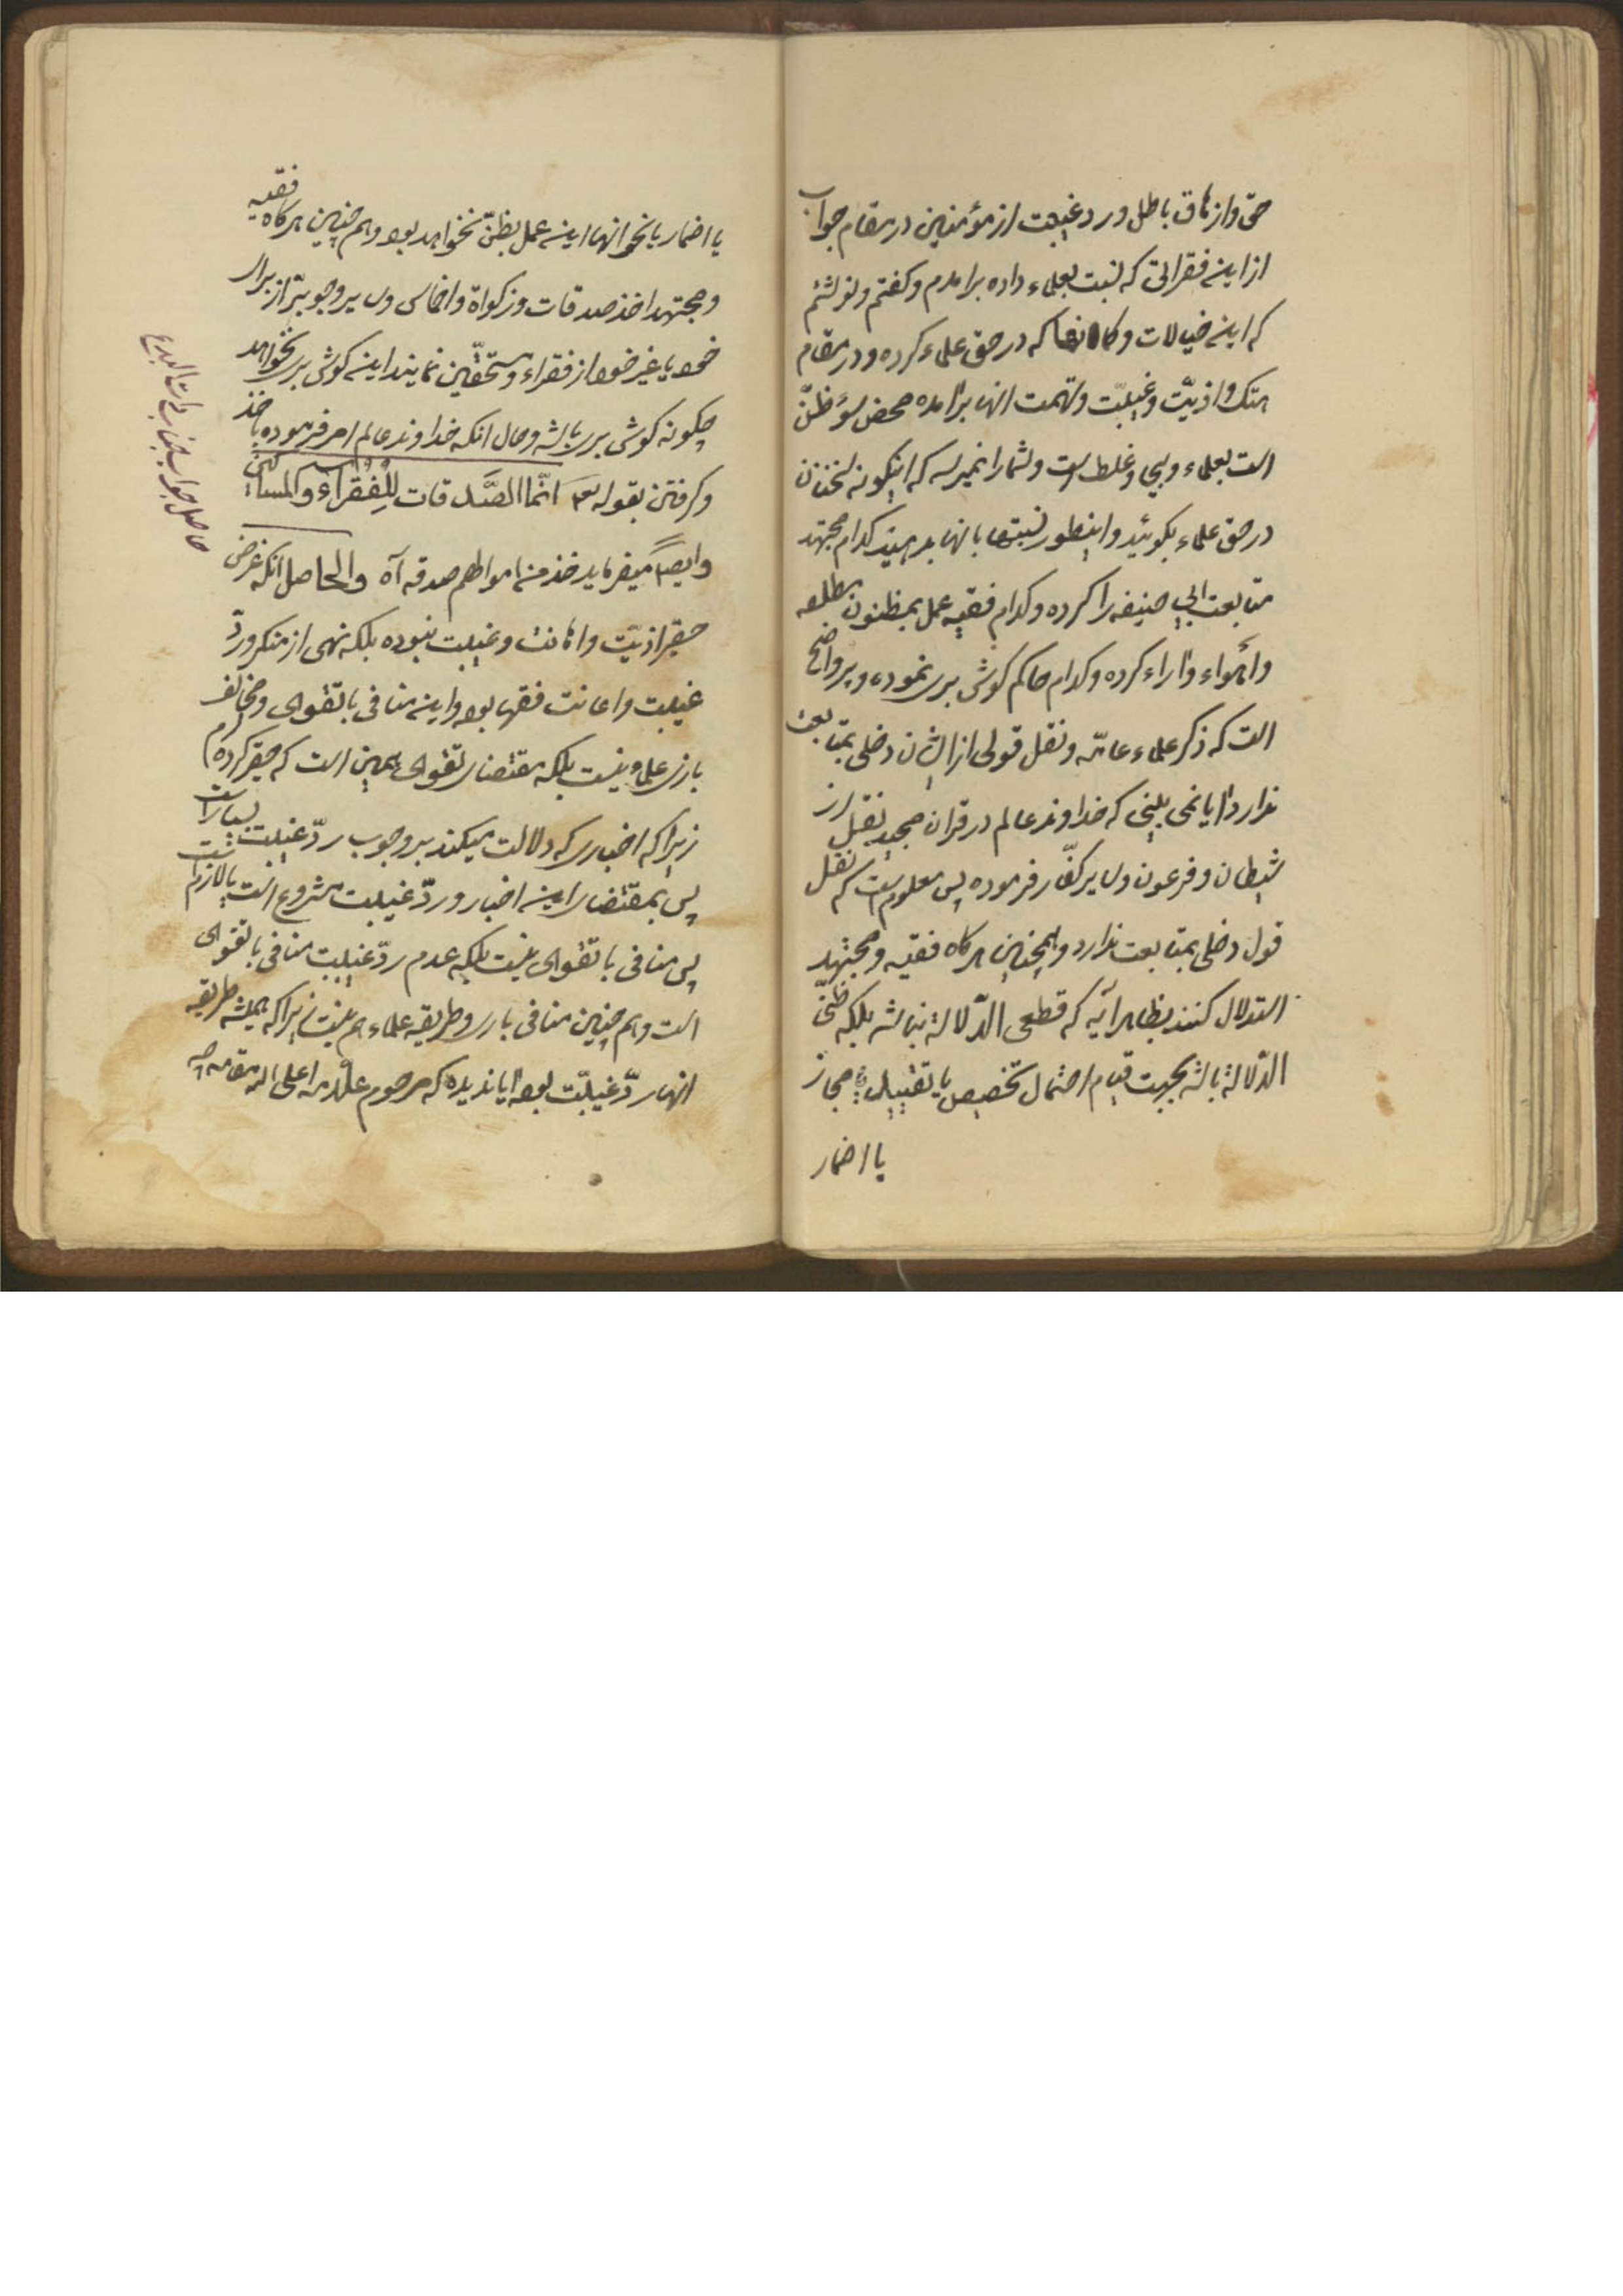 حق وازهاق باطل ورد غیبت از مؤمنین در مقام جواب
از اینه فقراتی که نسبت بعلماء داده برامدم وکفتم ونوشتم
که اینه خیالات وکمانها که در حق علماء کرده ودر مقام
هتک واذیّت وغیبت وتهمت انها برامده محض سوء ظنّ
است بعلماء وبیجا وغلط است وشما را نمیرسد که اینکونه سخنان
در حق علماء بکوئید واینطور نسبتها بانها بدهید کدام مجتهد
متابعت ابی حنیفه را کرده وکدام فقیه عمل بمظنون مطلقه
واهواء واراء کرده وکدام حاکم کوش بری نموده وپر واضح
است که ذکر علماء عامّه ونقل قولی از ایشان دخلی بمتابعت
ندارد ایا نمی بینی که خداوند عالم در قران مجید نقل از
شیطان وفرعون وسایر کفّار فرموده پس معلوم است که نقل
قول دخلی بمتابعت ندارد وهمچنین هرکاه فقیه ومجتهد
استدلال کنند بظاهر آیه که قطعی الدّلالة نباشد بلکه ظنّی
الدّلالة باشد بجهت قیام احتمال تخصیص یا تقیید یا مجاز
یا اضمار
یا اضمار یا نحو انها اینه عمل بظنّ نخواهد بود وهم چنین هرکاه فقیه
ومجتهد اخذ صدقات وزکواة واخماس وسایر وجوه بتر از برای
خود یا غیر خود از فقراء ومستحقّین نمایند اینه کوش بری نخواهد
چکونه کوش بری باشد وحال انکه خداوند عالم امر فرموده باخذ
وکرفتن بقوله تعـ انّما الصَّدقات لِلْفُقَرٰاءِ والمساکین
وایضاً میفرماید خذ من اموالهم صدقه آه والحاصل انکه غرض
حقیر اذیّت واهانت وغیبت نبوده بلکه نهی از منکر وردّ
غیبت واعانت فقها بوده واینه منافی با تقوای ومخالف
با زی علماء نیست بلکه مقتضای تقوای همین است که حقیر کرده ام
زیرا که اخباری که دلالت میکند بر وجوب ردّ غیبت بسیار است
پس بمقتضای اینه اخبار ردّ غیبت مشروع است یا لازم است
پس منافی با تقوای نیست بلکه عدم ردّ غیبت منافی با تقوای
است وهم چنین منافی با زی وطریقه علماء هم نیست زیرا که همیشه طریقه
انها ردّ غیبت بوده ایا ندیده که مرحوم علامه اعلی الله مقامه چه
حاصل جواب جناب